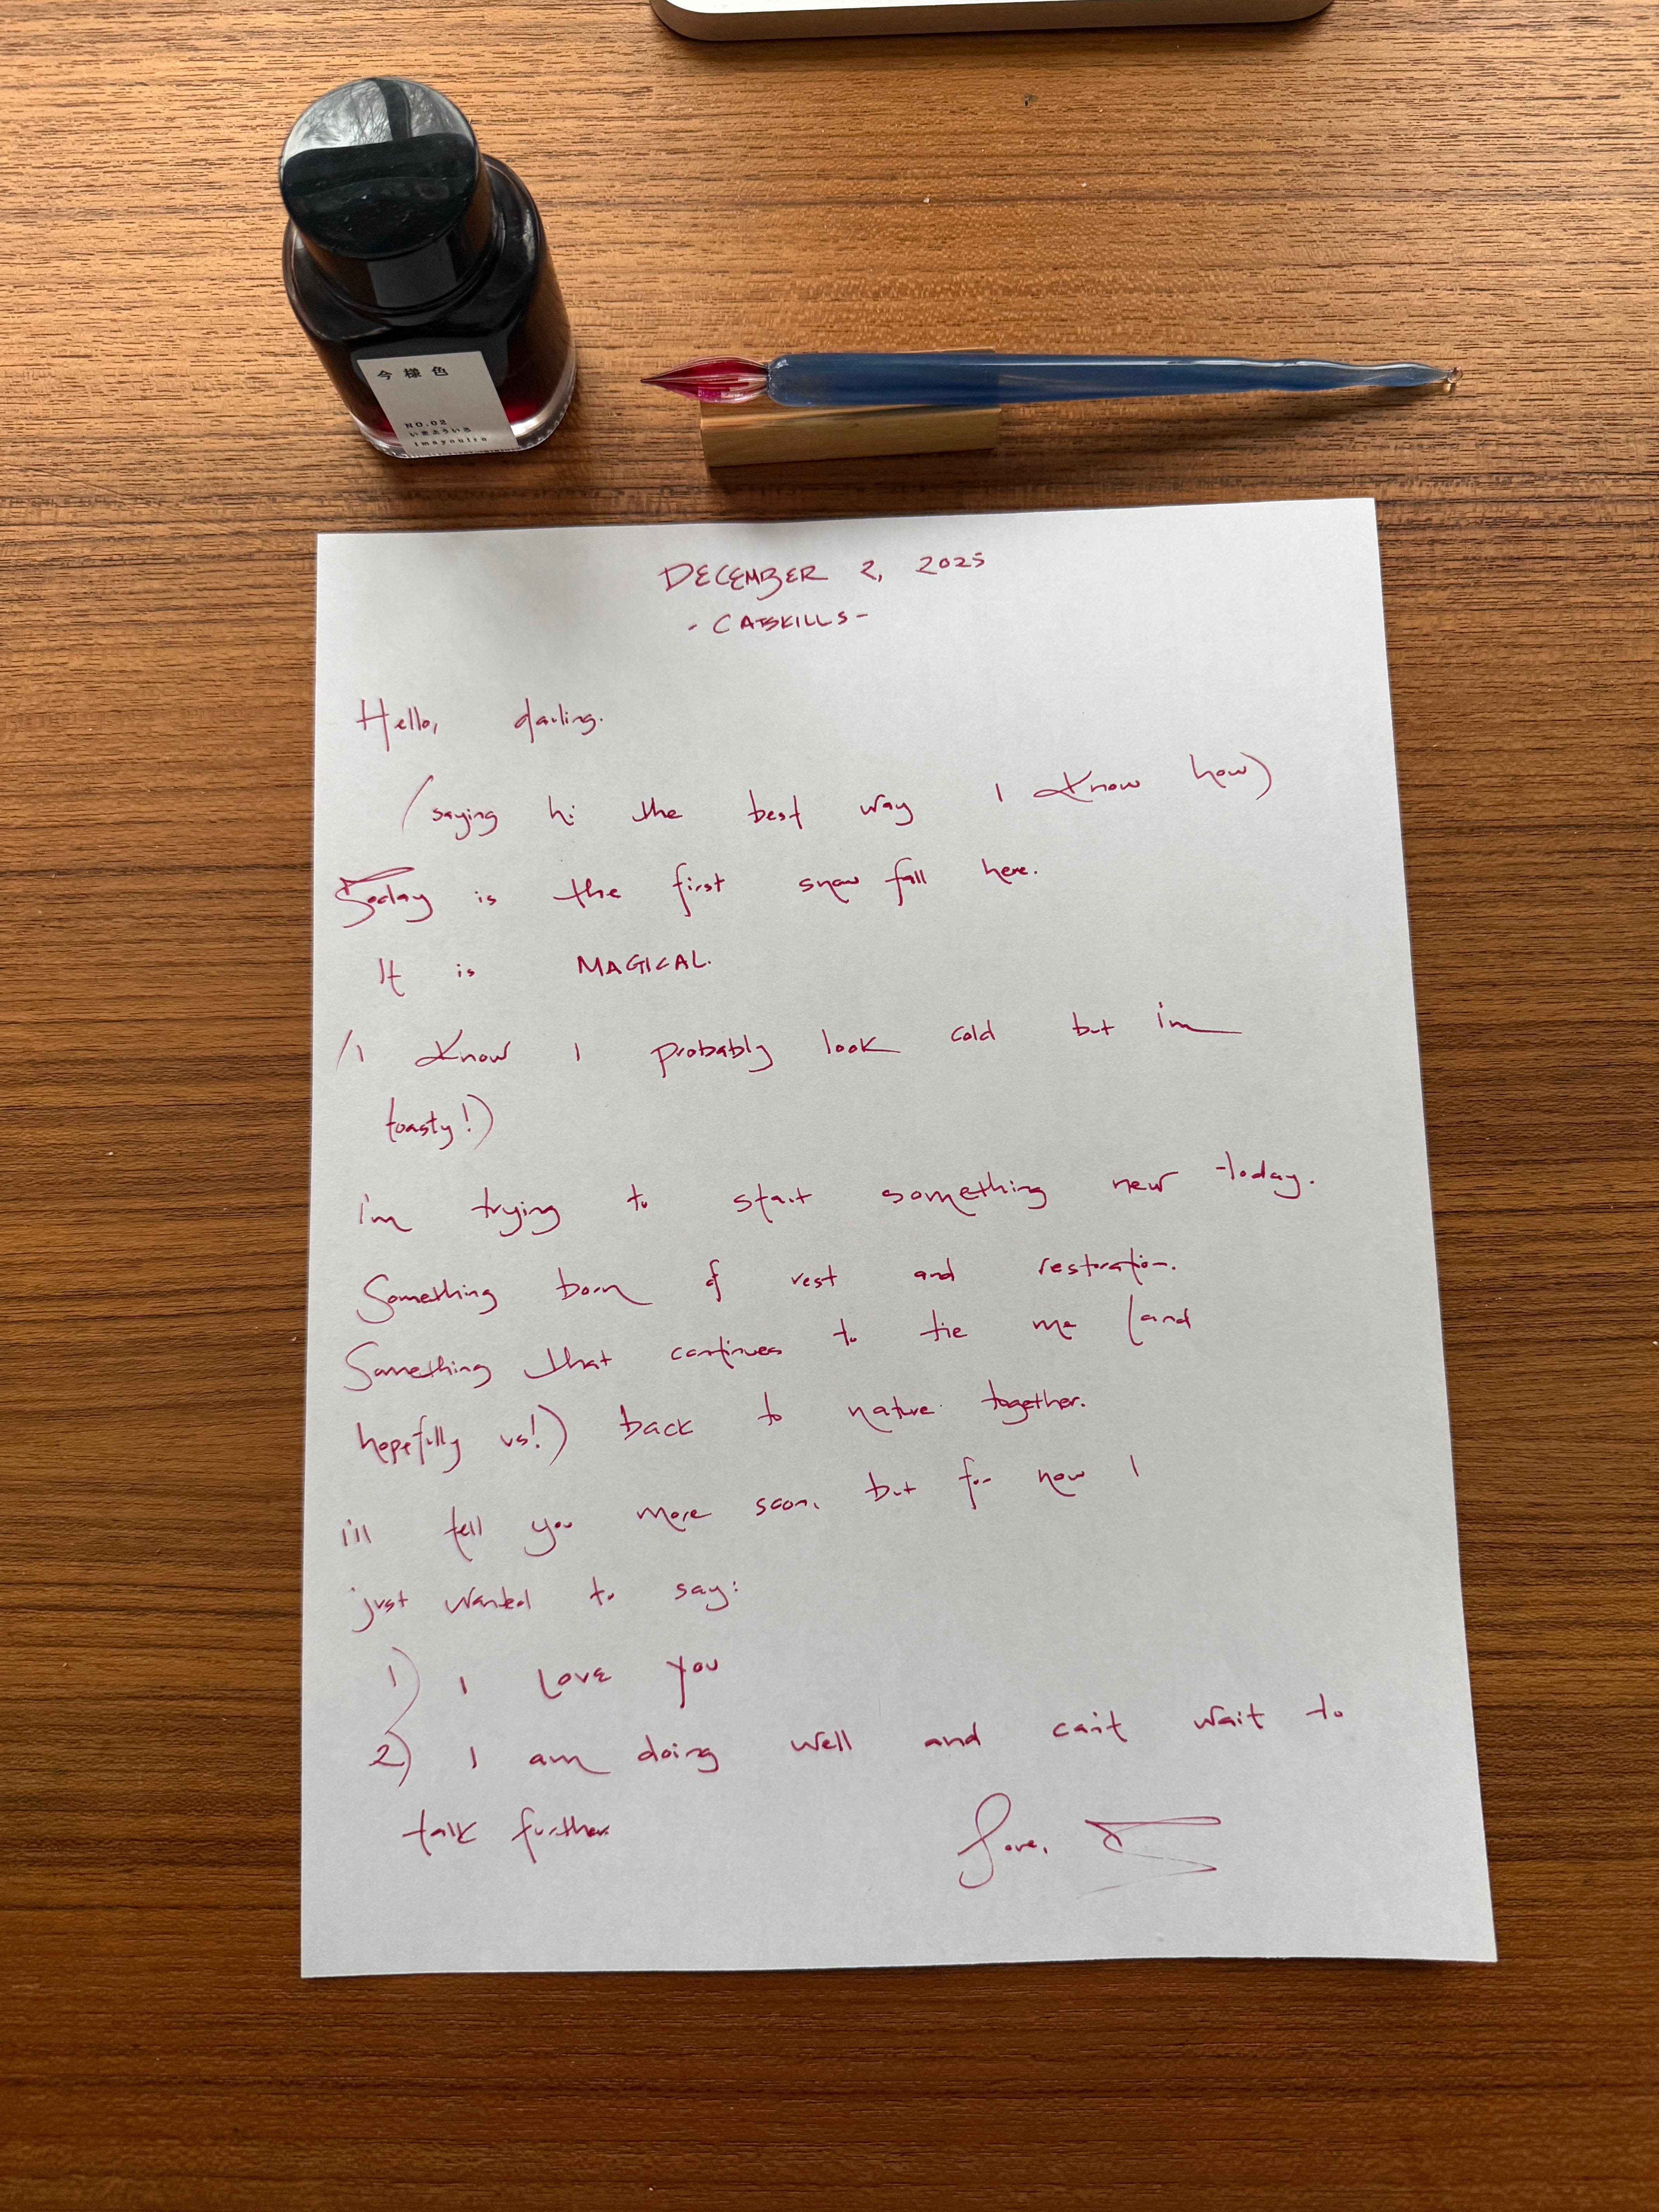 今様色
NO.02
いまよういろ
imayouiro
DECEMBER 2, 2025
- CATSKILLS -
Hello, darling.
(saying hi the best way I know how)
Today is the first snow fall here.
It is MAGICAL.
(I know I probably look cold but i'm
toasty!)
i'm trying to start something new today.
Something born of rest and restoration.
Something that continues to tie me (and
hopefully us!) back to nature together.
i'll tell you more soon, but for now I
just wanted to say:
1) I LOVE YOU
2) I am doing well and can't wait to
talk further
Love,